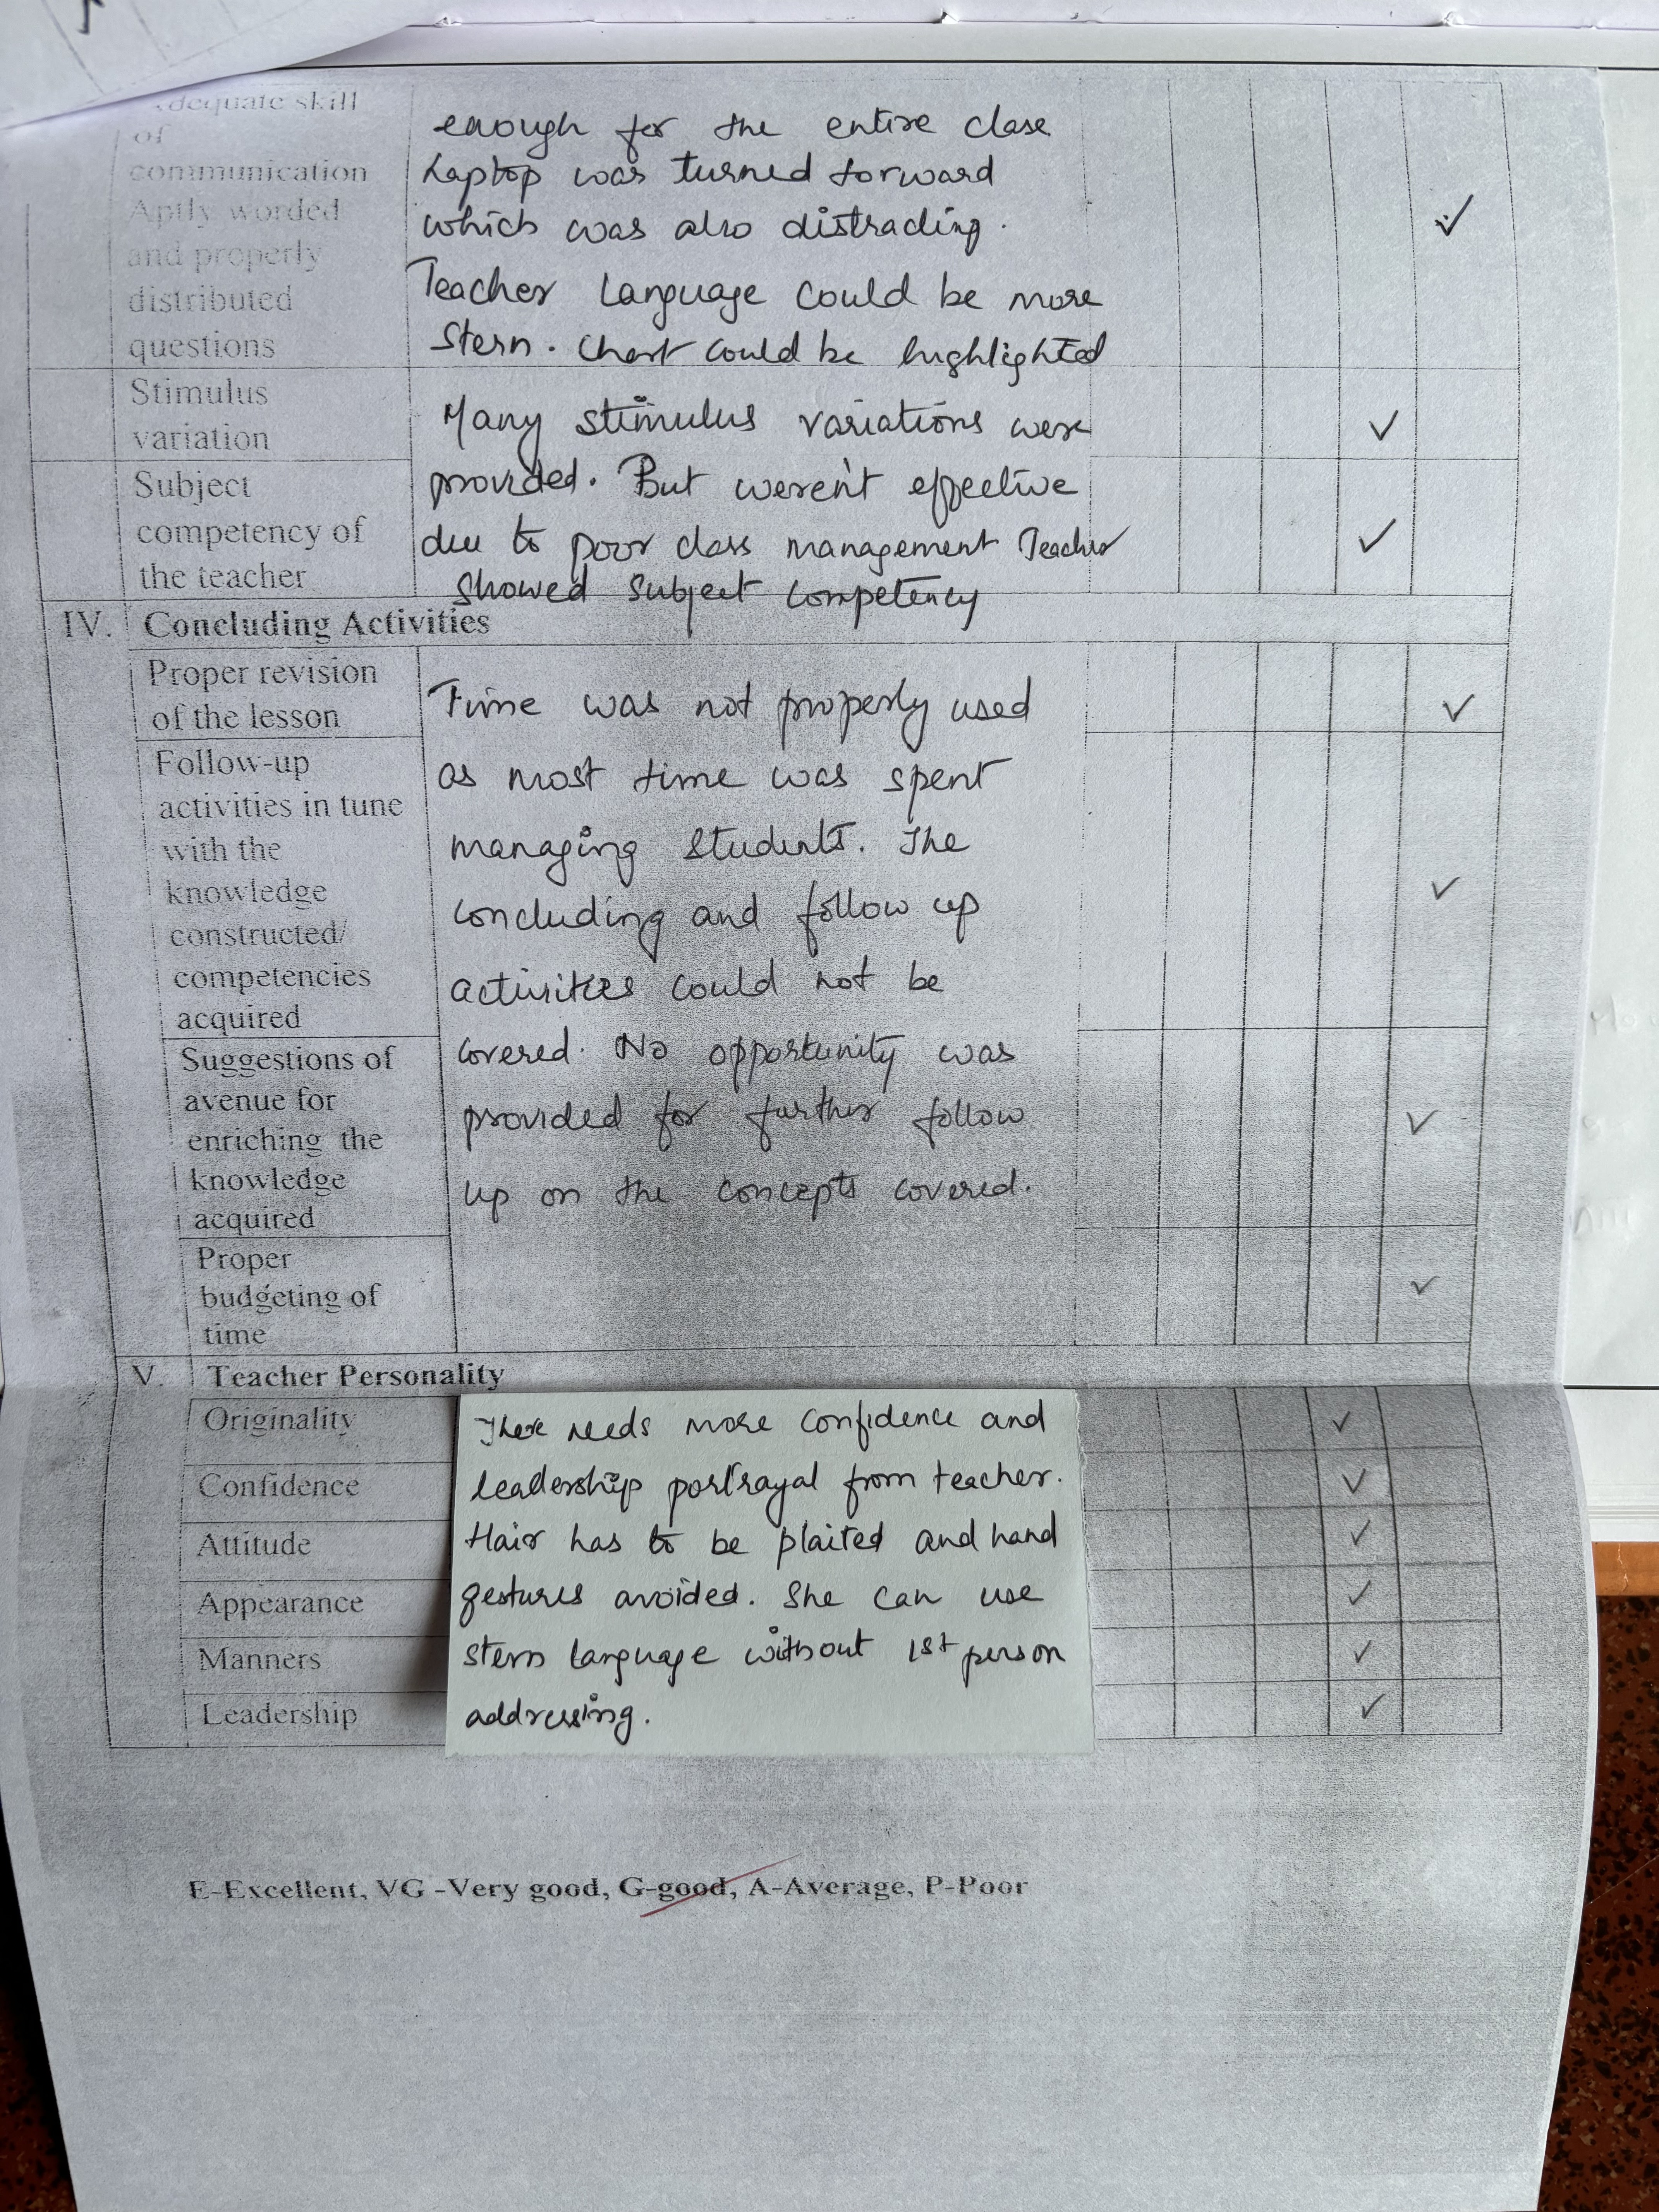 Adequate skill
of
communication
Aptly worded
and properly
distributed
questions
enough for the entire class
Laptop was turned forward
which was also distracting.
Teacher language could be more
stern. Chart could be highlighted
Stimulus
variation
Subject
competency of
the teacher
Many stimulus variations were
provided. But weren't effective
due to poor class management Teacher
showed subject competency
IV. Concluding Activities
Proper revision
of the lesson
Follow-up
activities in tune
with the
knowledge
constructed/
competencies
acquired
Suggestions of
avenue for
enriching the
knowledge
acquired
Proper
budgeting of
time
Time was not properly used
as most time was spent
managing students. The
concluding and follow up
activities could not be
covered. No opportunity was
provided for further follow
up on the concepts covered.
V. Teacher Personality
Originality
Confidence
Attitude
Appearance
Manners
Leadership
There needs more confidence and
leadership portrayal from teacher.
Hair has to be plaited and hand
gestures avoided. She can use
stern language without 1st person
addressing.
E-Excellent, VG -Very good, G-good, A-Average, P-Poor